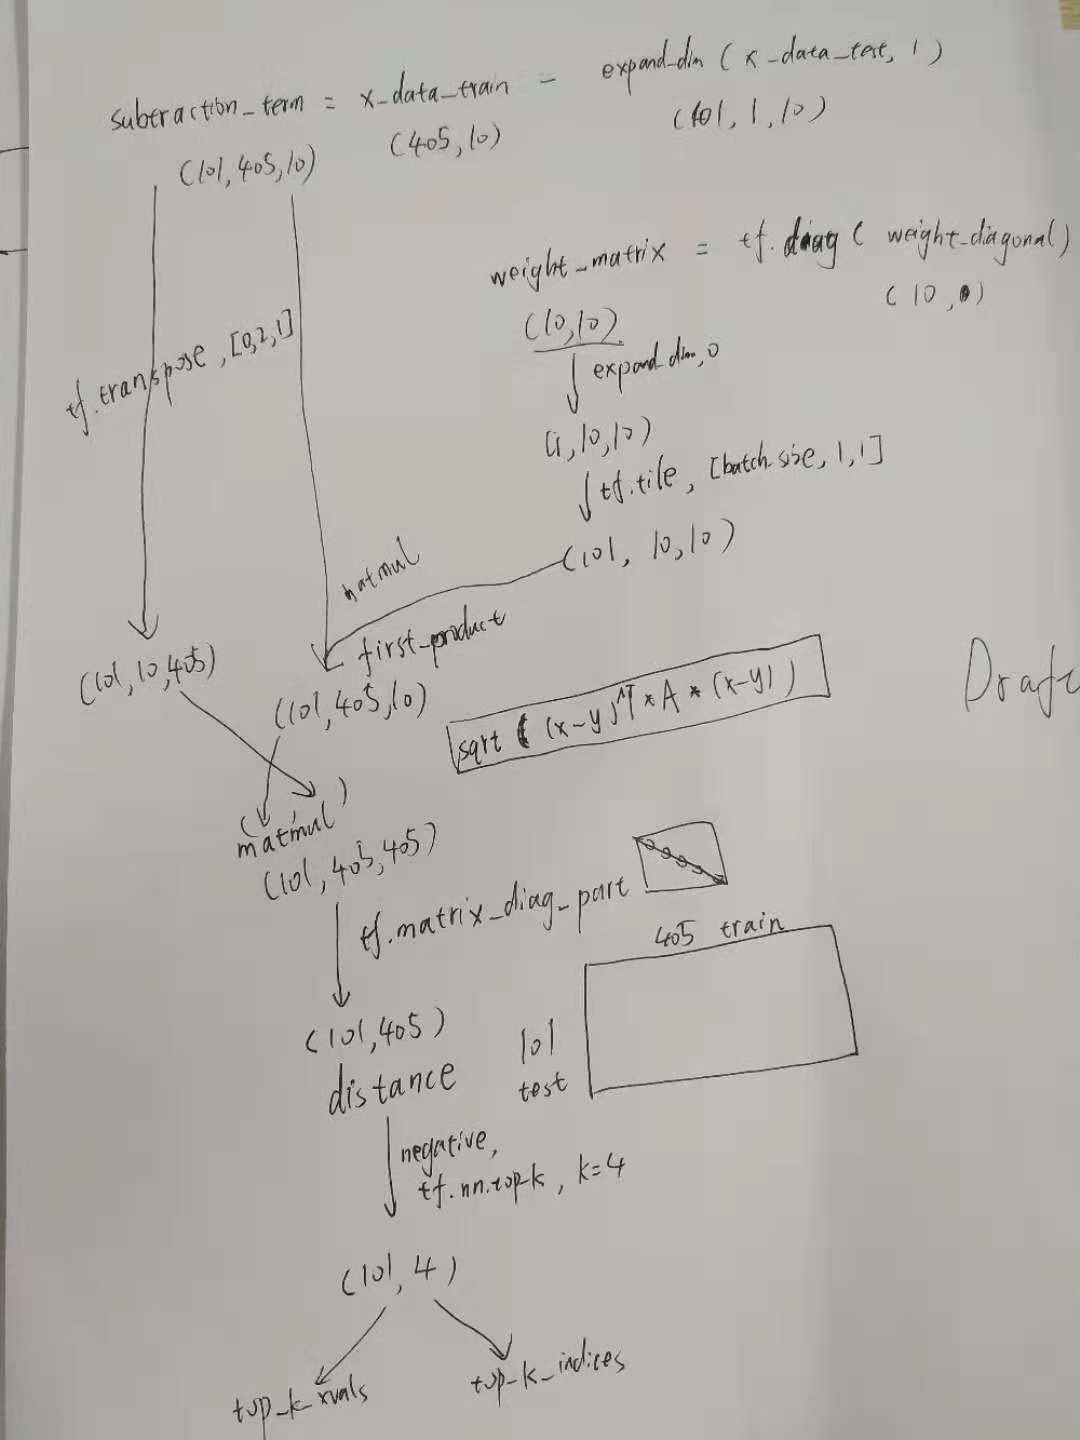 subtraction_term = x_data_train - expand_dim ( x_data_test, 1 )
(101, 405, 10) (405, 10) (101, 1, 10)
weight_matrix = tf. diag ( weight_diagonal)
(10,10) (10, )
tf.transpose, [0,2,1]
expand_dim, 0
(1, 10, 10)
tf.tile, [batch_size, 1, 1]
(101, 10, 10)
matmul
first_product
(101, 10, 405)
(101, 405, 10)
sqrt ( (x-y)^T * A * (x-y) )
Draft
( )
matmul
(101, 405, 405)
tf.matrix_diag_part
405 train
(101, 405)
distance
101
test
negative,
tf.nn.top_k, k=4
(101, 4)
top_k_xvals top_k_indices